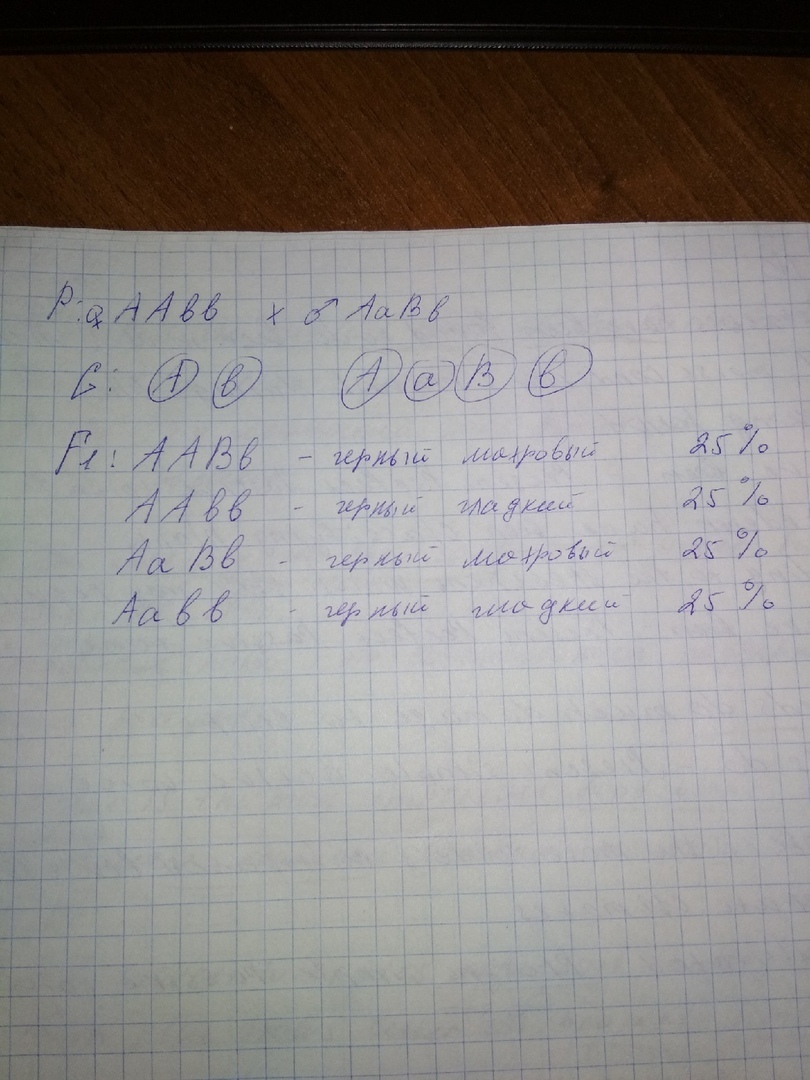 P: ♀ AAвв x ♂ АаВв
G: А в А а В в
F1: ААВв - черный махровый 25%
ААвв - черный гладкий 25%
АаВв - черный махровый 25%
Аавв - черный гладкий 25%